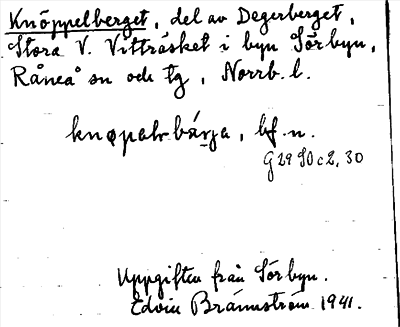 Knöppelberget, del av Degerberget,
Stora V. Vitträsket i byn Sörbyn,
Råneå sn och tg, Norrb. l.
knøpalr-bárja, bf. n.
G 29 SO c 2, 30
Uppgiften från Sörbyn.
Edvin Brännström 1941.